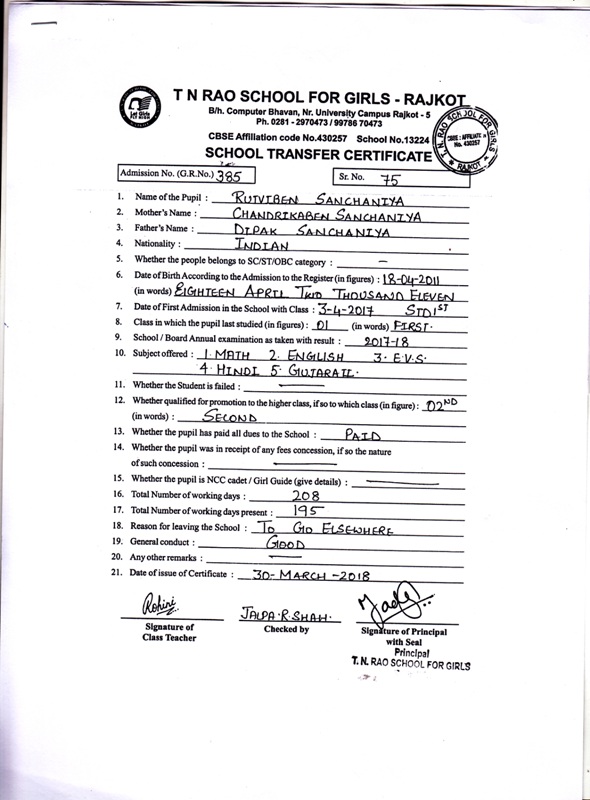 T N RAO SCHOOL FOR GIRLS - RAJKOT
B/h. Computer Bhavan, Nr. University Campus Rajkot - 5
Ph. 0281 - 2970473 / 99786 70473
CBSE Affiliation code No.430257 School No.13224
T. N. RAO SCHOOL FOR GIRLS
CBSE : AFFILIATE
No. 430257
* RAJKOT *
SCHOOL TRANSFER CERTIFICATE
Admission No. (G.R.No.) 385 Sr. No. 75
1. Name of the Pupil : RUTVIBEN SANCHANIYA
2. Mother's Name : CHANDRIKABEN SANCHANIYA
3. Father's Name : DIPAK SANCHANIYA
4. Nationality : INDIAN
5. Whether the people belongs to SC/ST/OBC category : —
6. Date of Birth According to the Admission to the Register (in figures) : 18-04-2011
(in words) EIGHTEEN APRIL TWO THOUSAND ELEVEN
7. Date of First Admission in the School with Class : 3-4-2017 STD 1ST
8. Class in which the pupil last studied (in figures) : 01 (in words) FIRST.
9. School / Board Annual examination as taken with result : 2017-18
10. Subject offered : 1. MATH 2. ENGLISH 3. E.V.S.
4. HINDI 5. GUJARATI.
11. Whether the Student is failed : —
12. Whether qualified for promotion to the higher class, if so to which class (in figure) : 02ND
(in words) : SECOND
13. Whether the pupil has paid all dues to the School : PAID
14. Whether the pupil was in receipt of any fees concession, if so the nature
of such concession : —
15. Whether the pupil is NCC cadet / Girl Guide (give details) : —
16. Total Number of working days : 208
17. Total Number of working days present : 195
18. Reason for leaving the School : TO GO ELSEWHERE
19. General conduct : GOOD
20. Any other remarks : —
21. Date of issue of Certificate : 30-MARCH-2018
Rohini JALPA.R.SHAH.
Signature of Class Teacher
Checked by
Signature of Principal
with Seal
Principal
T. N. RAO SCHOOL FOR GIRLS